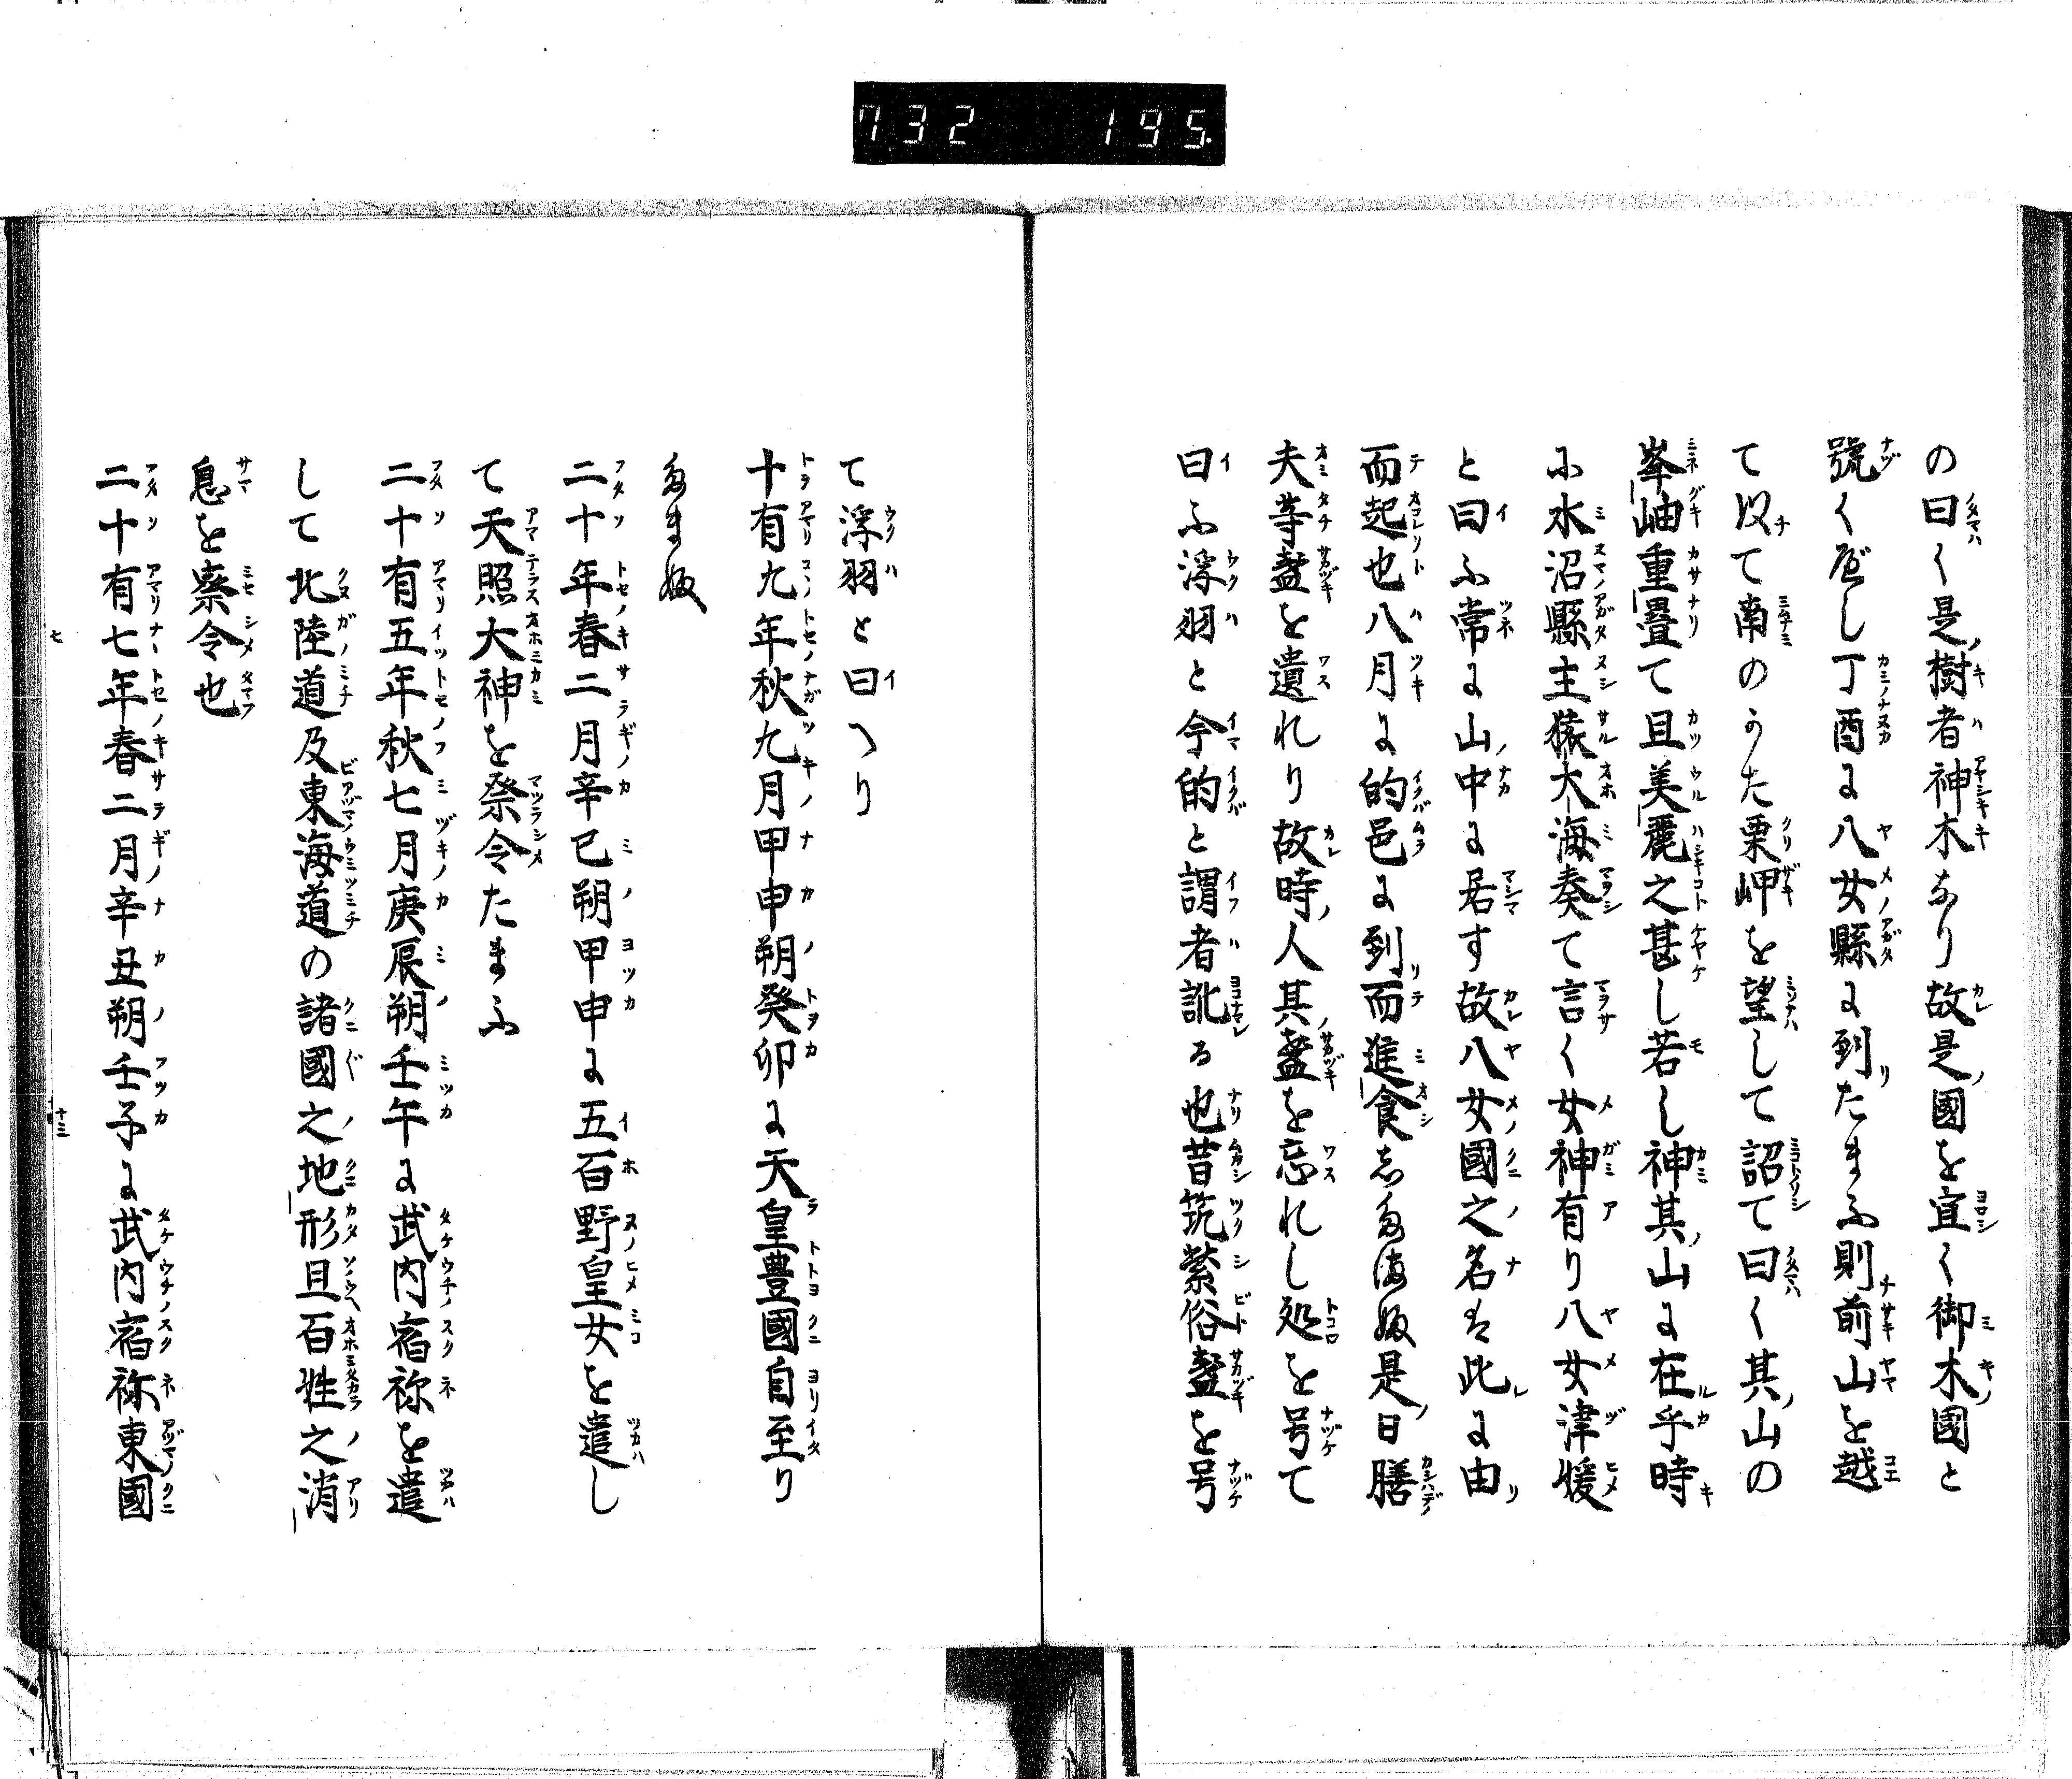 732 195
の曰く是樹者神木なり故是國を宜く御木國と
號く應し丁酉に八女縣に到りたまふ則前山を越
て以て南のかた栗岬を望して詔て曰く其山の
峯岫重疊て且美麗之甚し若し神其山に在乎時
に水沼縣主猿大海奏て言く女神有り八女津媛
と曰ふ常に山中に居す故八女國之名は此に由
而起也八月に的邑に到而進食したまふ是日膳
夫等盞を遺れり故時人其盞を忘れし処を号て
曰ふ浮羽と今的と謂者訛る也昔筑紫俗盞を号
て浮羽と曰へり
十有九年秋九月甲申朔癸卯に天皇豊國自至り
たまふ
二十年春二月辛巳朔甲申に五百野皇女を遣し
て天照大神を祭令たまふ
二十有五年秋七月庚辰朔壬午に武内宿祢を遣
して北陸道及東海道の諸國之地形且百姓之消
息を察令也
二十有七年春二月辛丑朔壬子に武内宿祢東國
七 十三